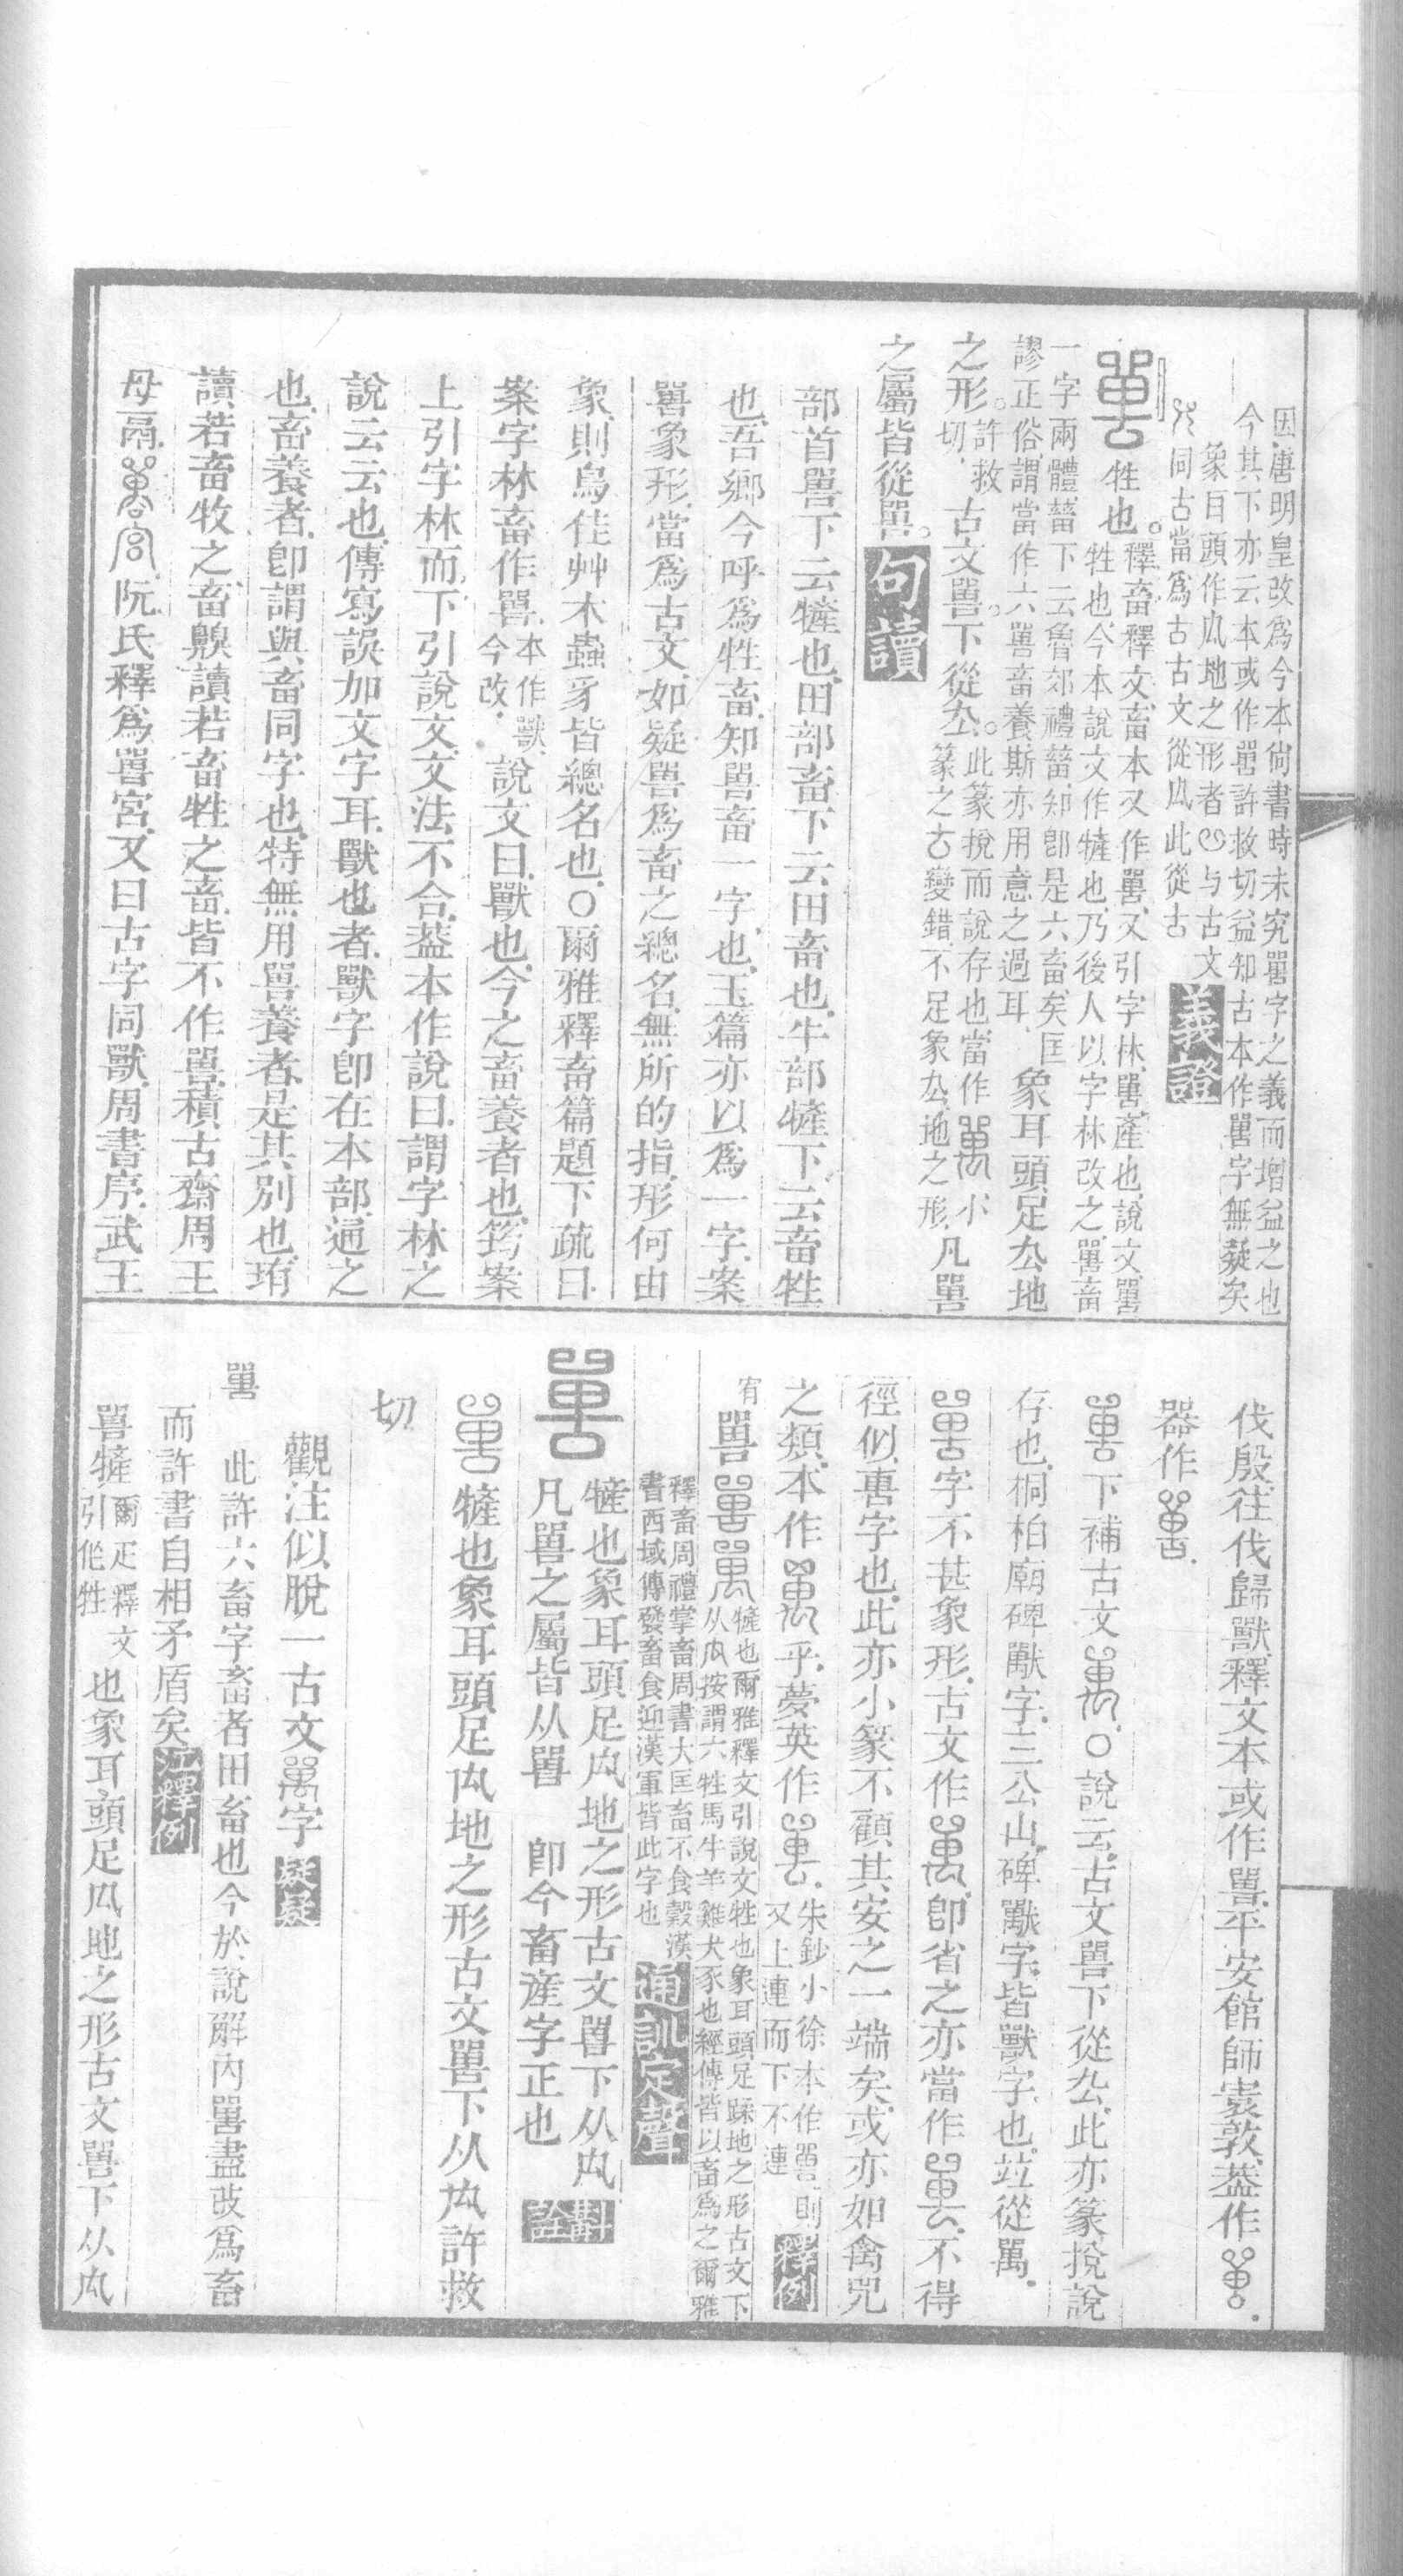 因唐明皇改爲今本尙書時未究嘼字之義而增益之也
今其下亦云本或作嘼許救切益知古本作嘼字無疑矣
象目頭作厹地之形者與古文
同古當爲古古文從厹此從古
義證
牲也
釋畜釋文畜本又作嘼又引字林嘼產也說文嘼
牲也今本說文作㹌也乃後人以字林改之嘼畜
一字兩體蓄下云魯郊禮蓄知卽是六畜矣匡
謬正俗謂當作六嘼畜養斯亦用意之過耳
象耳頭足厹地
之形許救切古文嘼下從厹此篆挩而說存也當作小
篆之古變錯不足象厹地之形凡嘼
之屬皆從嘼
句讀
部首嘼下云㹌也田部畜下云田畜也牛部㹌下云畜牲
也吾鄉今呼爲牲畜知嘼畜一字也玉篇亦以爲一字案
嘼象形當爲古文如疑嘼爲畜之總名無所的指形何由
象則鳥隹艸木蟲豸皆總名也○爾雅釋畜篇題下疏曰
案字林畜作嘼本作獸今改說文曰獸也今之畜養者也筠案
上引字林而下引說文文法不合葢本作說曰謂字林之
說云云也傳寫誤加文字耳獸也者獸字卽在本部通之
也畜養者卽謂與畜同字也特無用嘼養者是其別也珛
讀若畜牧之畜䶌讀若畜牲之畜皆不作嘼積古齋周王
母鬲宮阮氏釋爲嘼宮又曰古字同獸周書序武王
伐殷往伐歸獸釋文本或作嘼平安館師㝨敦葢作
器作
下補古文○說云古文嘼下從厹此亦篆挩說
存也桐柏廟碑獸字三公山碑獸字皆獸字也竝從
字不甚象形古文作卽省之亦當作不得
徑似叀字也此亦小篆不顧其安之一端矣或亦如禽兕
之類本作乎夢英作朱鈔小徐本作嘼則
又上連而下不連
釋例
宥嘼
㹌也爾雅釋文引說文牲也象耳頭足蹂地之形古文下
从厹按謂六牲馬牛羊雞犬豕也經傳皆以畜爲之爾雅
釋畜周禮掌畜周書大匡畜不食穀漢
書西域傳發畜食迎漢軍皆此字也
通訓定聲
㹌也象耳頭足厹地之形古文嘼下从厹
凡嘼之屬皆从嘼 卽今畜產字正也
斠詮
㹌也象耳頭足厹地之形古文嘼下从厹許救
切
觀注似脫一古文字
疑疑
嘼
此許六畜字畜者田畜也今於說解內嘼盡改爲畜
而許書自相矛盾矣
江釋例
嘼㹌爾疋釋文引作牲也象耳頭足厹地之形古文嘼下从厹